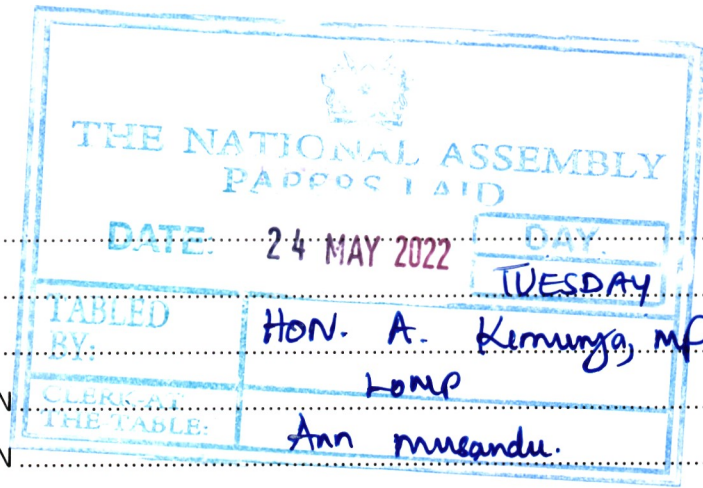 THE NATIONAL ASSEMBLY
PAPERS LAID
DATE: 24 MAY 2022 DAY.
TUESDAY
TABLED BY: HON. A. Kimunya, MP
LOMP
CLERK-AT THE-TABLE: Ann Musandu.
N
N